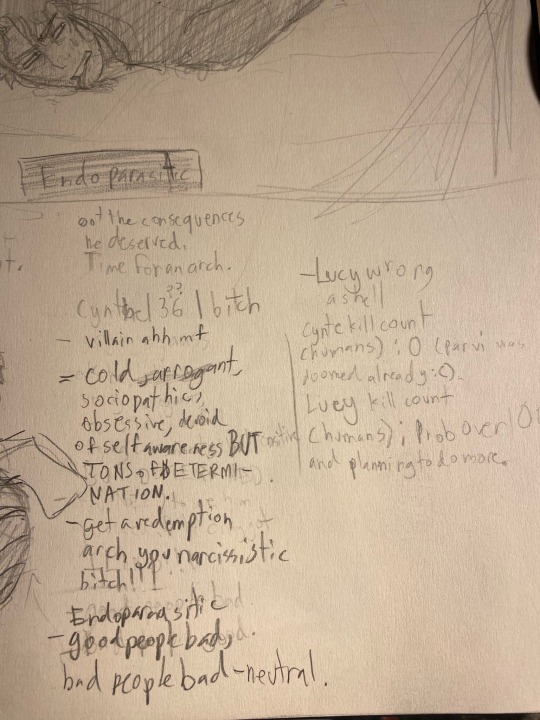 Endoparasitic
got the consequences
he deserved.
Time for an arch.
??
36 | bitch
- villain ahh mf
= cold, arrogant,
sociopathic,
obsessive, devoid
of self awareness BUT
TONS of DETERMI-
NATION.
- get a redemption
arch you narcissistic
bitch!!!
Endoparasitic
- good people bad,
bad people bad-neutral.
t.
- Lucy wrong
as hell
Cynte kill count
(humans): 0 (parvi was
doomed already :().
Lucy kill count
(humans); Prob over
and planning to do more.